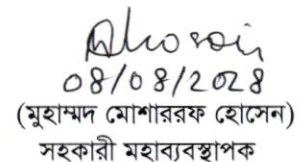 08/08/2028
(মুহাম্মদ মোশাররফ হোসেন)
সহকারী মহাব্যবস্থাপক